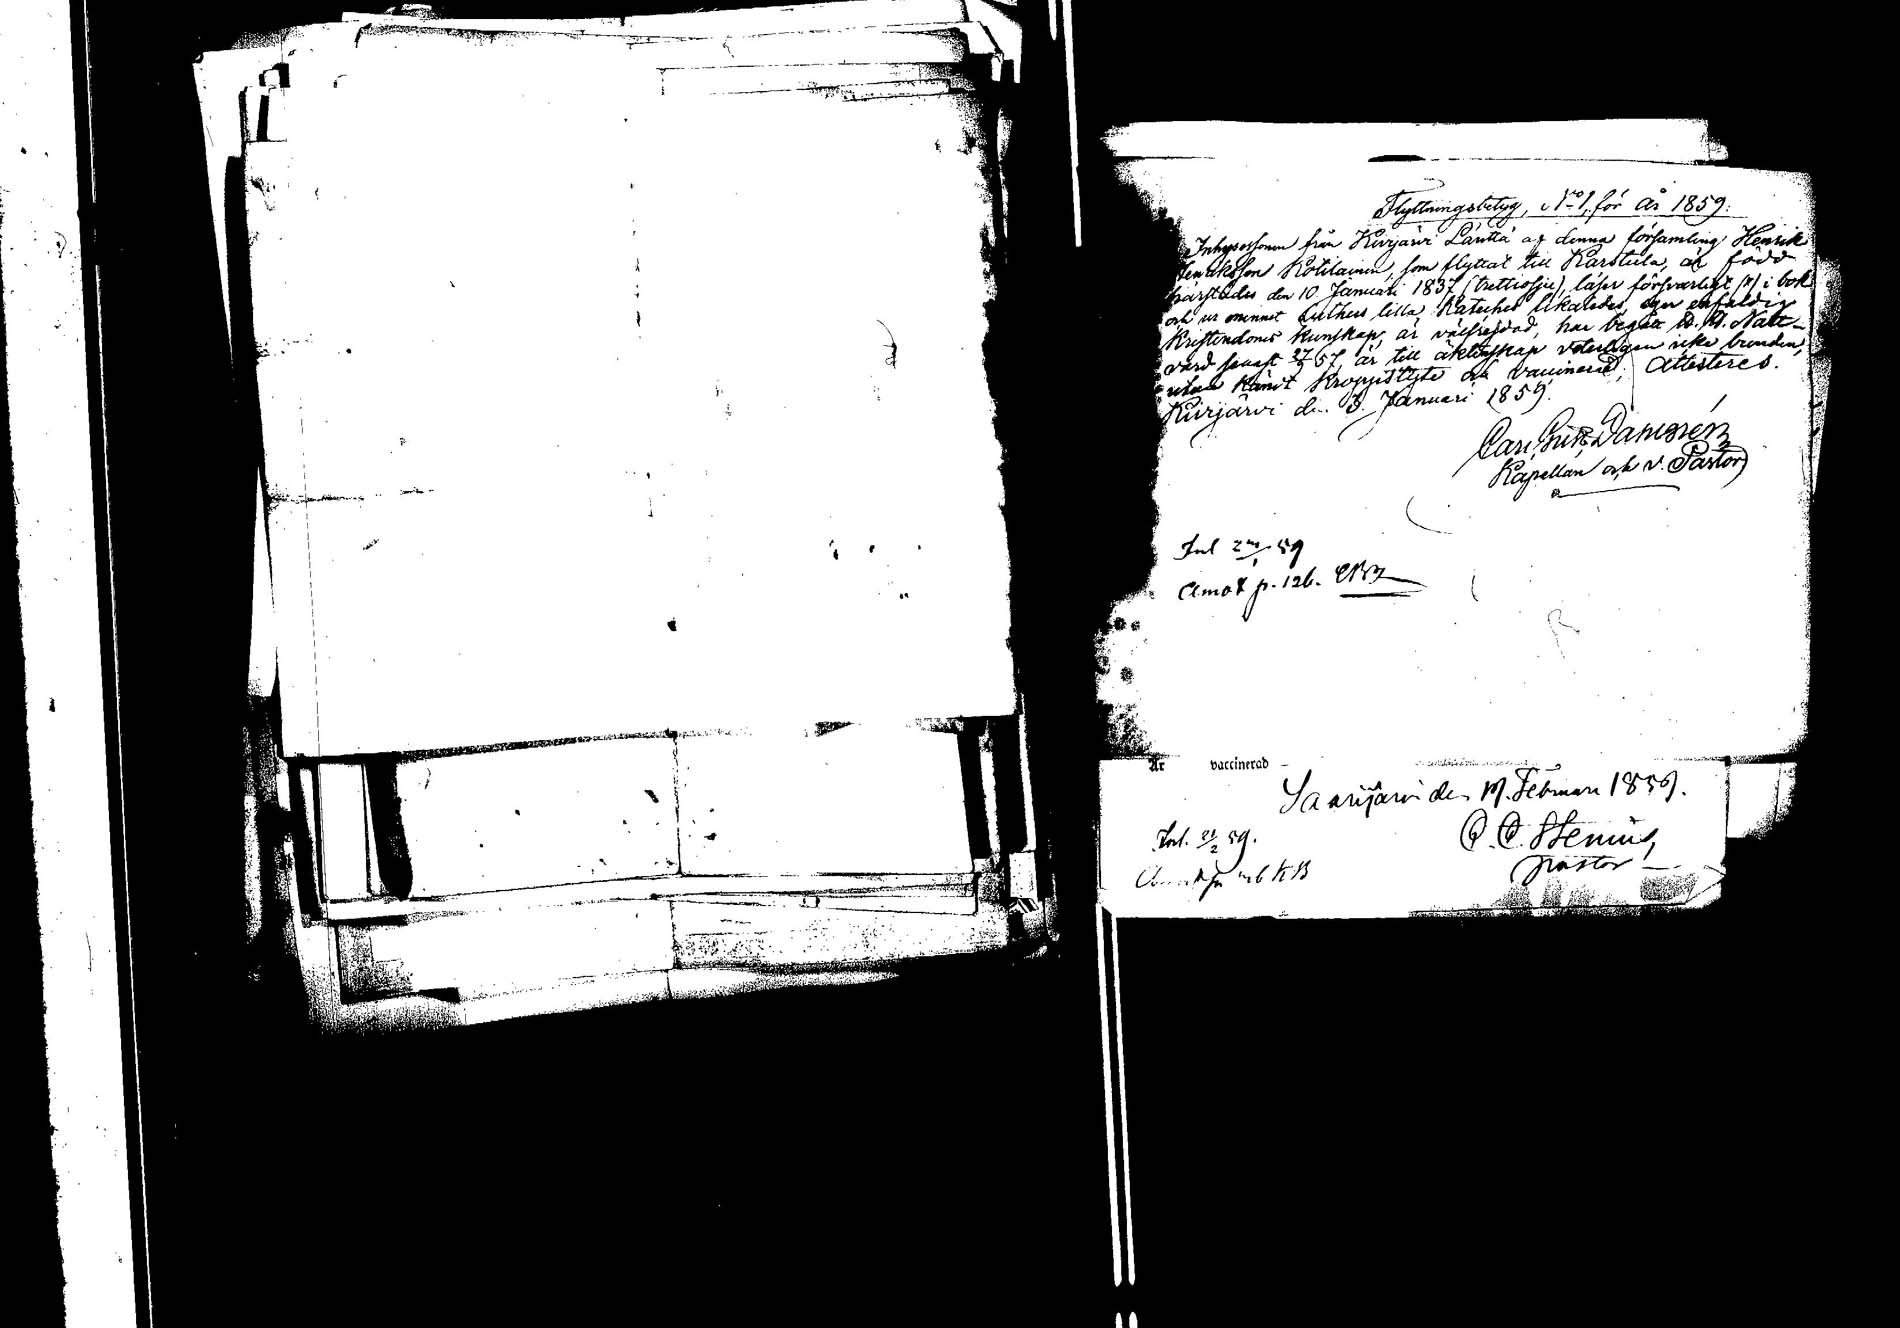 Flyttningsbetyg, No 1, för år 1859.
Inhysessonen från Kivijärvi Länttä af denna församling Henrik
Henriksson Kotilainen, som flyttat till Karstula, är född
härstädes den 10 Januari 1837 (trettiosju), läser försvarligt (x) i bok
och ur minnet Luthers lilla Kateches likaledes, eger enfaldig
Kristendoms kunskap, är välfrejdad, har begått H. H. Natt-
vard senast 27/57, är till äktenskap veterligen icke bunden,
utan kändt kroppslyte och vaccinerad; Attesteres.
Kivijärvi den 3. Januari 1859.
Carl Erik Danssén
Kapellan och v. Pastor
Inl 59
Amot p. 126.
Är vaccinerad
Saarijärvi den 19. Februari 1859.
Inl. 21/2 59.
C. C. Stenius,
pastor